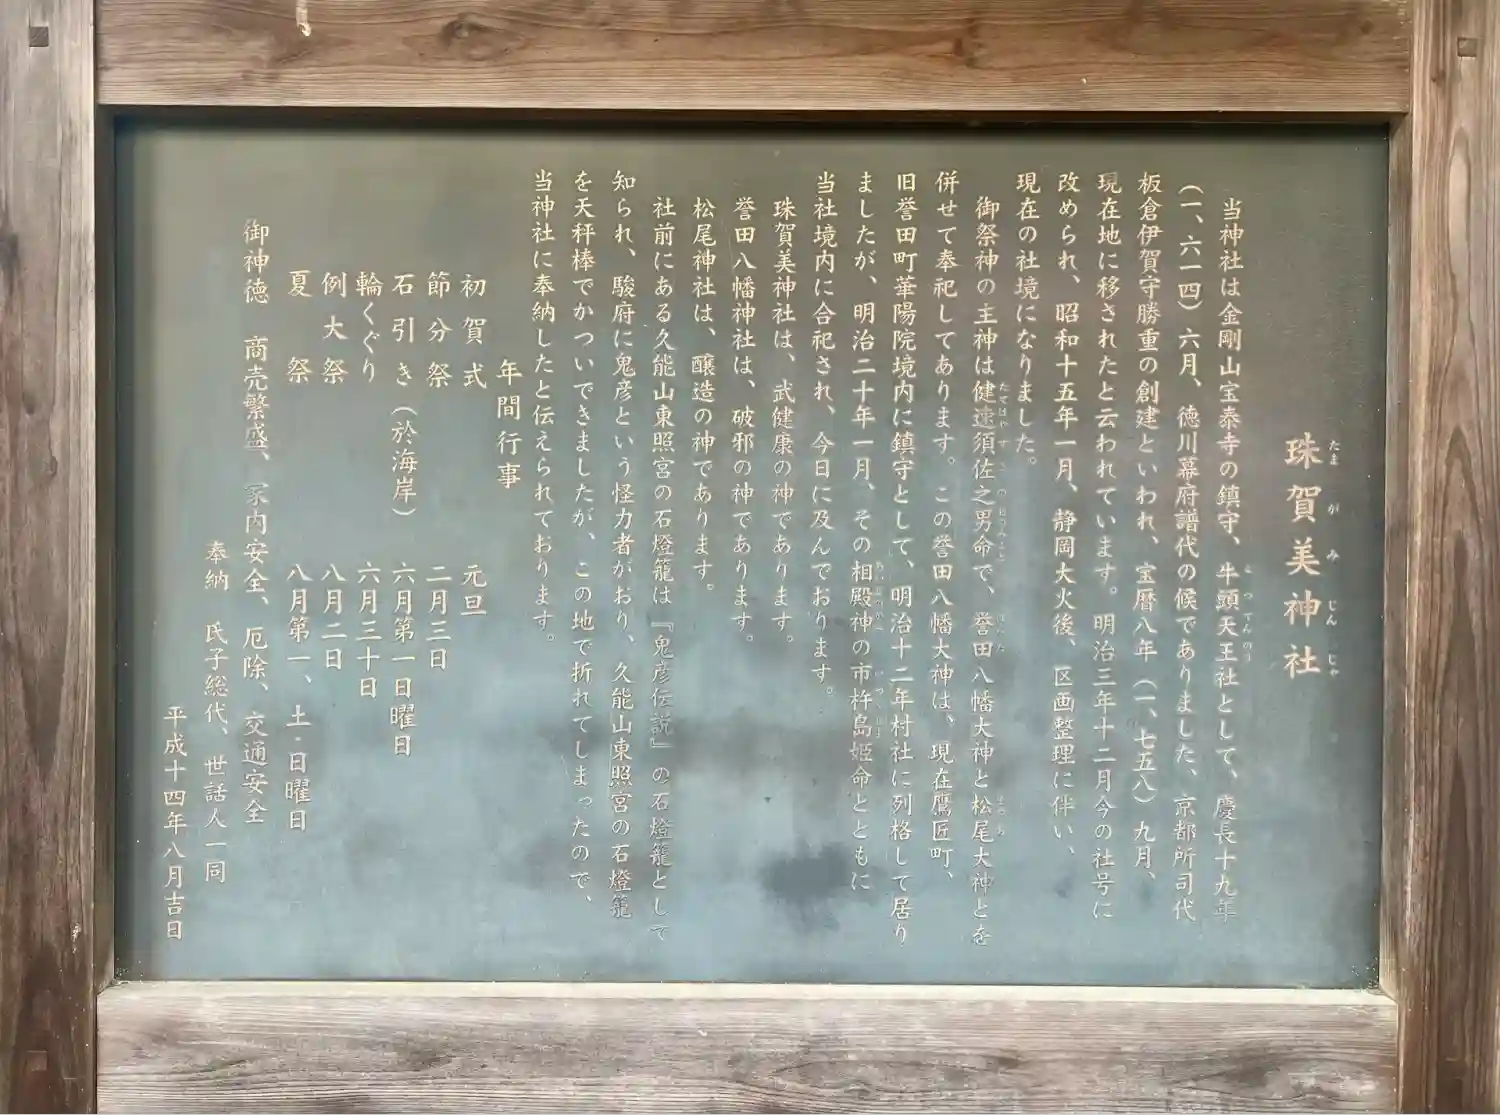 珠賀美神社
当神社は金剛山宝泰寺の鎮守、牛頭天王社として、慶長十九年
（一、六一四）六月、徳川幕府譜代の候でありました、京都所司代
板倉伊賀守勝重の創建といわれ、宝暦八年（一、七五八）九月、
現在地に移されたと云われています。明治三年十二月今の社号に
改められ、昭和十五年一月、静岡大火後、区画整理に伴い、
現在の社境になりました。
御祭神の主神は健速須佐之男命で、誉田八幡大神と松尾大神とを
併せて奉祀してあります。この誉田八幡大神は、現在鷹匠町、
旧誉田町華陽院境内に鎮守として、明治十二年村社に列格して居り
ましたが、明治二十年一月、その相殿神の市杵島姫命とともに
当社境内に合祀され、今日に及んでおります。
珠賀美神社は、武健康の神であります。
誉田八幡神社は、破邪の神であります。
松尾神社は、醸造の神であります。
社前にある久能山東照宮の石燈籠は『鬼彦伝説』の石燈籠として
知られ、駿府に鬼彦という怪力者がおり、久能山東照宮の石燈籠
を天秤棒でかついできましたが、この地で折れてしまったので、
当神社に奉納したと伝えられております。
年間行事
初賀式 元旦
節分祭 二月三日
石引き（於海岸） 六月第一日曜日
輪くぐり 六月三十日
例大祭 八月二日
夏祭 八月第一、土・日曜日
御神徳 商売繁盛、家内安全、厄除、交通安全
奉納 氏子総代、世話人一同
平成十四年八月吉日